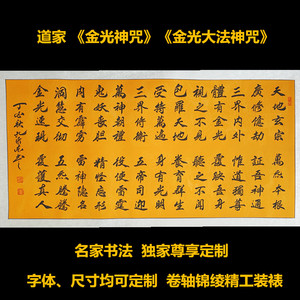 道家 《金光神咒》《金光大法神咒》
天地玄宗 萬炁本根
廣修億劫 證吾神通
三界內外 惟道獨尊
體有金光 覆映吾身
視之不見 聽之不聞
包羅天地 養育群生
受持萬遍 身有光明
三界侍衛 五帝司迎
萬神朝禮 役使雷霆
鬼妖喪膽 精怪忘形
內有霹靂 雷神隱名
洞慧交徹 五炁騰騰
金光速現 覆護真人
丁酉秋
名家书法 独家尊享定制
字体、尺寸均可定制 卷轴锦绫精工装裱